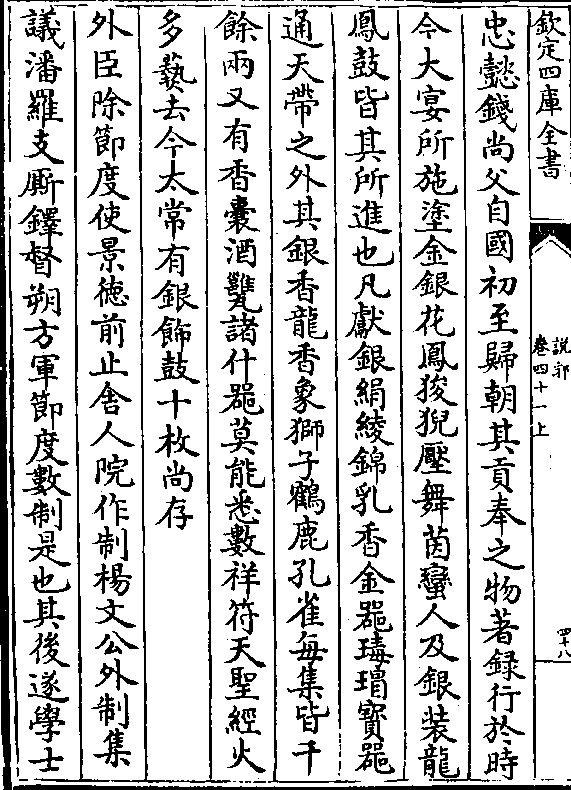 欽定四庫全書
說郛
卷四十一上
四十八
忠懿錢尚父自國初至歸朝其貢奉之物著錄行於時
今大宴所施塗金銀花鳳狻猊壓舞茵蠻人及銀裝龍
鳳鼓皆其所進也凡獻銀絹綾錦乳香金器瑇瑁寶器
通天帶之外其銀香龍香象獅子鶴鹿孔雀每集皆千
餘兩又有香囊酒甕諸什器莫能悉數祥符天聖經火
多爇去今太常有銀飾鼓十枚尚存
外臣除節度使景徳前止舍人院作制楊文公外制集
議潘羅支厮鐸督朔方軍節度數制是也其後遂學士